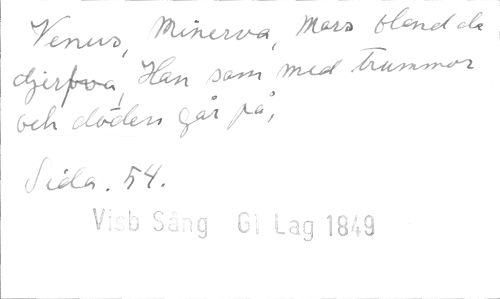 Venus, Minerva, Mars bland de
djerfva, Han som med Trummor
och döden går på,
Sida. 54.
Visb Sång Gl Lag 1849